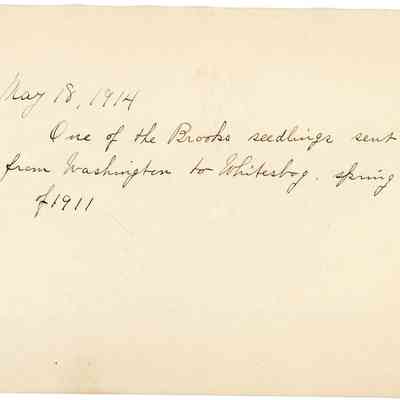 May 18, 1914
One of the Brooks seedlings sent
from Washington to Whitesbog. spring
of 1911